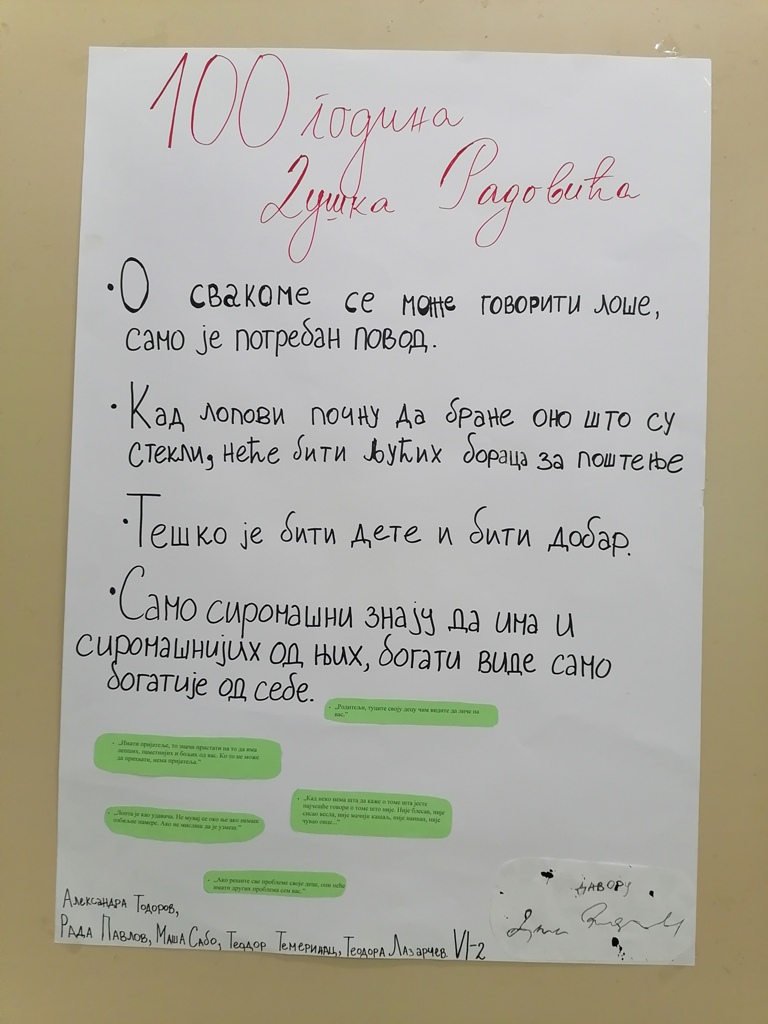 100 година
Душка Радовића
•О свакоме се може говорити лоше,
само је потребан повод.
•Кад лопови почну да бране оно што су
стекли, неће бити љућих бораца за поштење
•Тешко је бити дете и бити добар.
•Само сиромашни знају да има и
сиромашнијих од њих, богати виде само
богатије од себе.
- „Родитељи, туците своју децу чим видите да личе на
вас.“
- „Имати пријатеље, то значи пристати на то да има
лепших, паметнијих и бољих од вас. Ко то не може
да прихвати, нема пријатеља.“
- „Кад неко нема шта да каже о томе шта јесте
најчешће говори о томе шта није. Није блесав, није
сисао весла, није мачији кашаљ, није наиван, није
чувао овце...“
- „Жена је као удавача. Не мувај се око ње ако немаш
озбиљне намере. Ако не мислиш да је узмеш.“
- „Ако решите све проблеме своје деце, они неће
имати других проблема сем вас.“
Александра Тодоров,
Рада Павлов, Маша Сабо, Теодор Темеринац, Теодора Лазарчев VI-2
ДАВОРУ